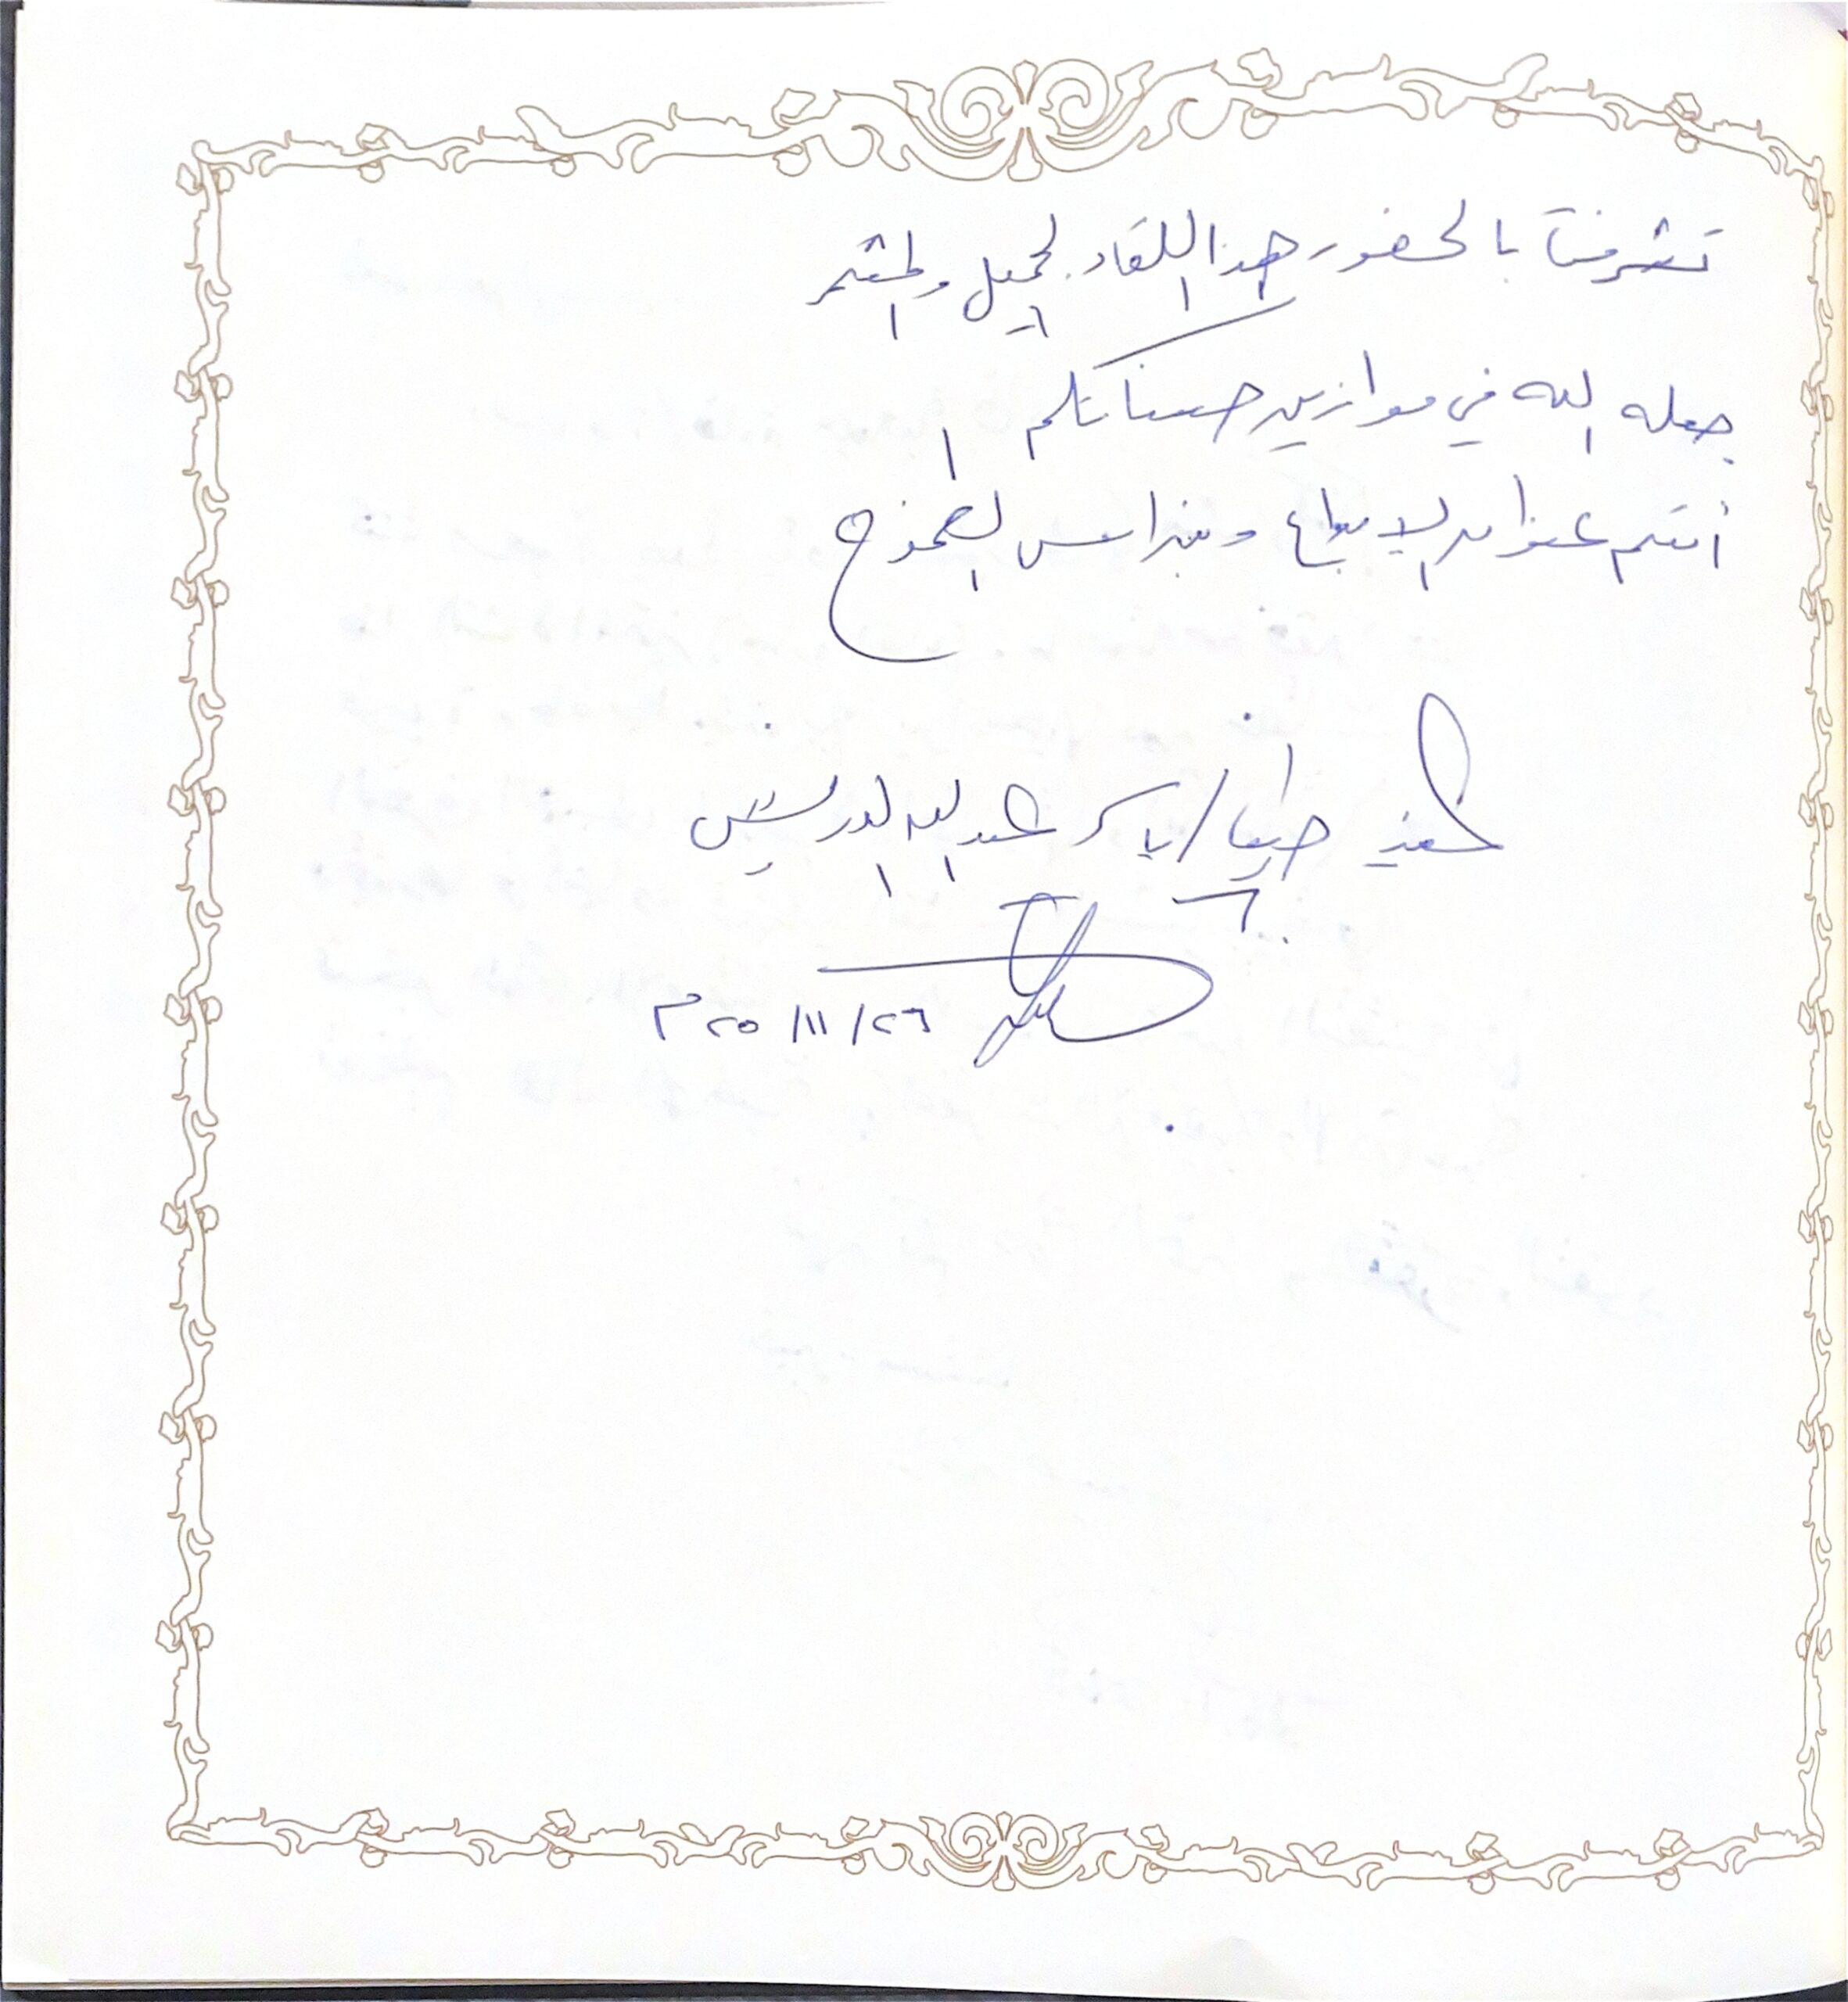 تشرفت بالحضور هذا اللقاء الجميل والمثمر
جعله الله في موازين حسناتكم
أنتم عنوان الإبداع ونبراس الطموح
عبد الله الدريس
٢٦/١١/٢٥م